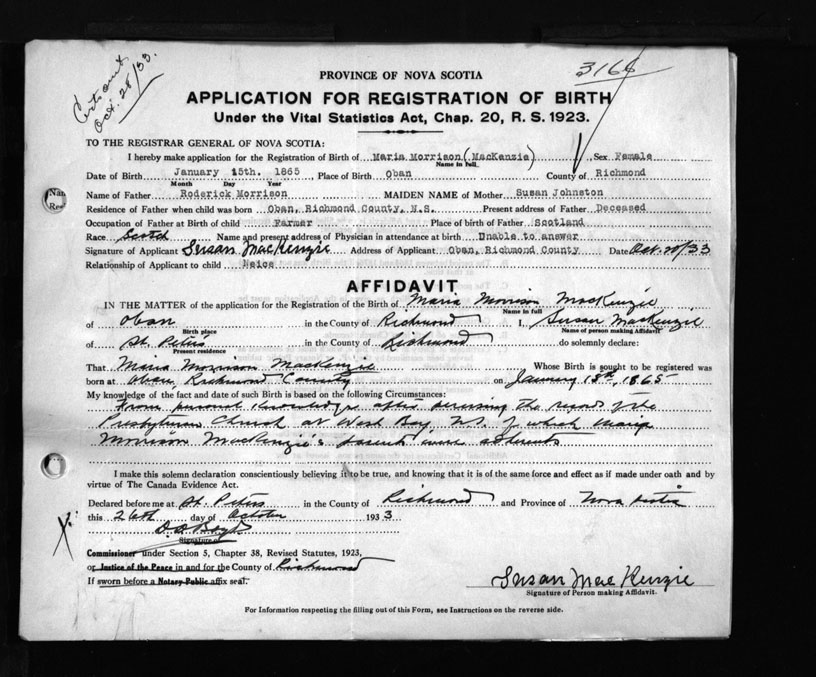 Cert. sent
Oct. 28/33.
3168
PROVINCE OF NOVA SCOTIA
APPLICATION FOR REGISTRATION OF BIRTH
Under the Vital Statistics Act, Chap. 20, R. S. 1923.
TO THE REGISTRAR GENERAL OF NOVA SCOTIA:
I hereby make application for the Registration of Birth of Maria Morrison (MacKenzie) Sex Female
Name in full
Date of Birth January 15th. 1865 Place of Birth Oban County of Richmond
Month Day Year
Name of Father Roderick Morrison MAIDEN NAME of Mother Susan Johnston
Residence of Father when child was born Oban, Richmond County, N.S. Present address of Father Deceased
Occupation of Father at Birth of child Farmer Place of birth of Father Scotland
Race Scotch Name and present address of Physician in attendance at birth Unable to answer
Signature of Applicant Susan MacKenzie Address of Applicant Oban, Richmond County Date Oct. 20/33
Relationship of Applicant to child Neice
AFFIDAVIT
IN THE MATTER of the application for the Registration of the Birth of Maria Morrison MacKenzie
Name in full
of Oban in the County of Richmond I, Susan MacKenzie
Birth place Name of person making Affidavit
of St. Peters in the County of Richmond do solemnly declare:
Present residence
That Maria Morrison MacKenzie Whose Birth is sought to be registered was
born at Oban, Richmond County on January 15th, 1865
My knowledge of the fact and date of such Birth is based on the following Circumstances:
From personal knowledge after perusing the record of the
Presbyterian Church at West Bay, N.S. of which Maria
Morrison MacKenzie's parents were adherents
I make this solemn declaration conscientiously believing it to be true, and knowing that it is of the same force and effect as if made under oath and by
virtue of The Canada Evidence Act.
Declared before me at St. Peters in the County of Richmond and Province of Nova Scotia
this 26th day of October 1933
Signature of
Commissioner under Section 5, Chapter 38, Revised Statutes, 1923,
or Justice of the Peace in and for the County of Richmond
If sworn before a Notary Public affix seal.
Susan MacKenzie
Signature of Person making Affidavit.
For Information respecting the filling out of this Form, see Instructions on the reverse side.